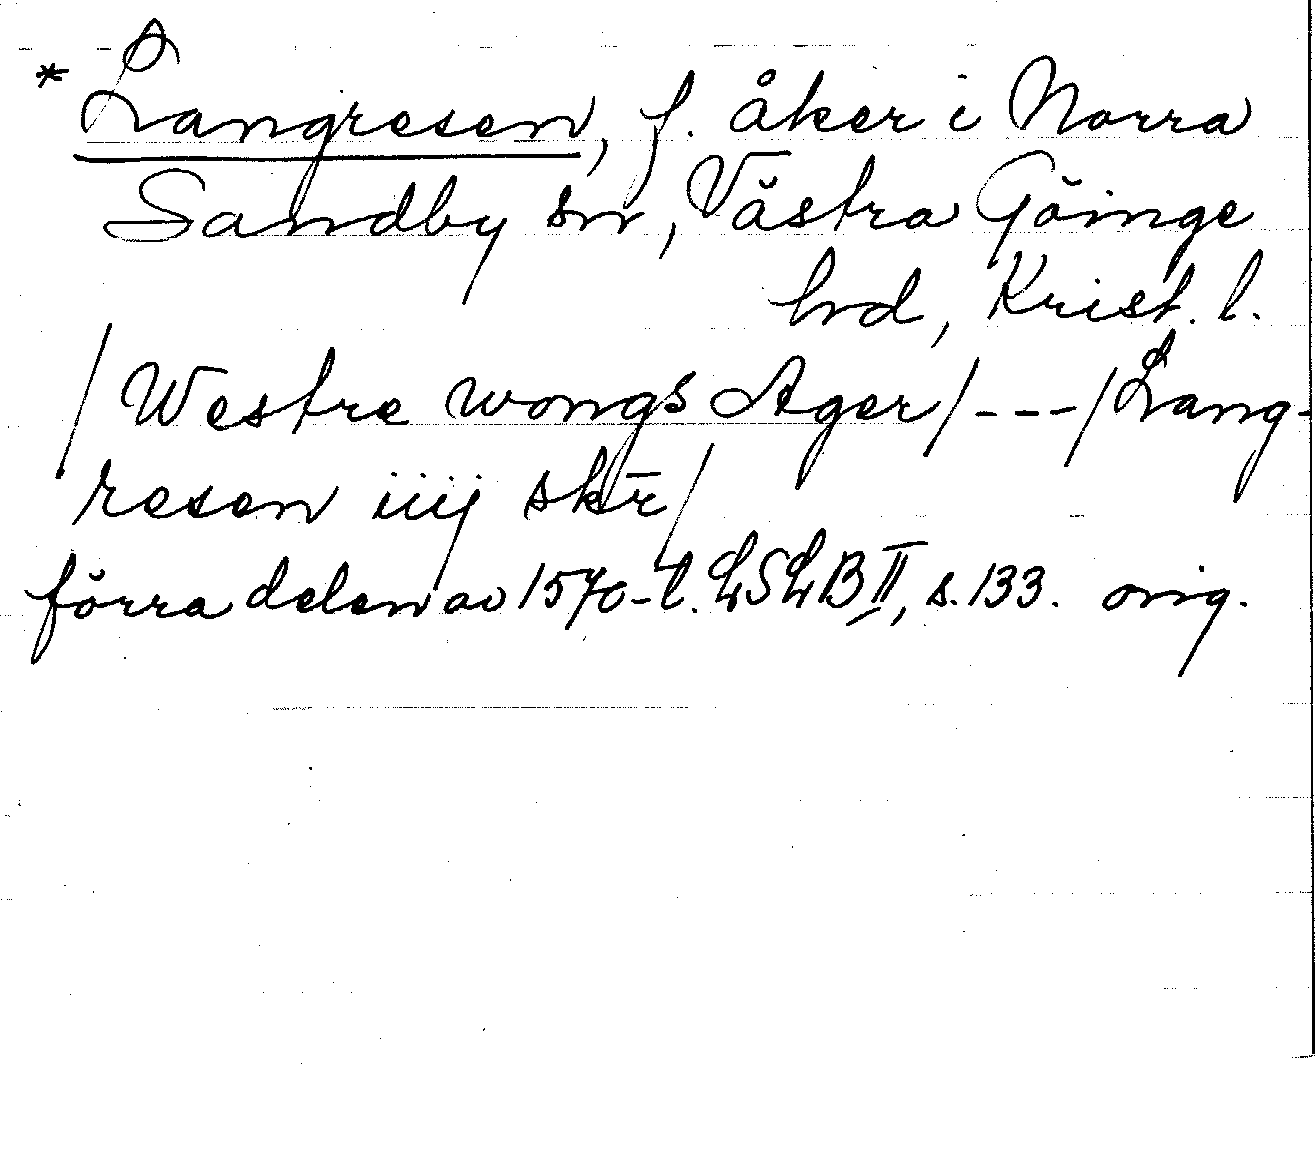 * Langresen, f. åker i Norra
Sandby sn, Västra Göinge
hrd, Krist. l.
/Westre wongs Ager/---/Lang-
resen iiij skr̄/
förra delen av 1570-t. LSLB II, s. 133. orig.